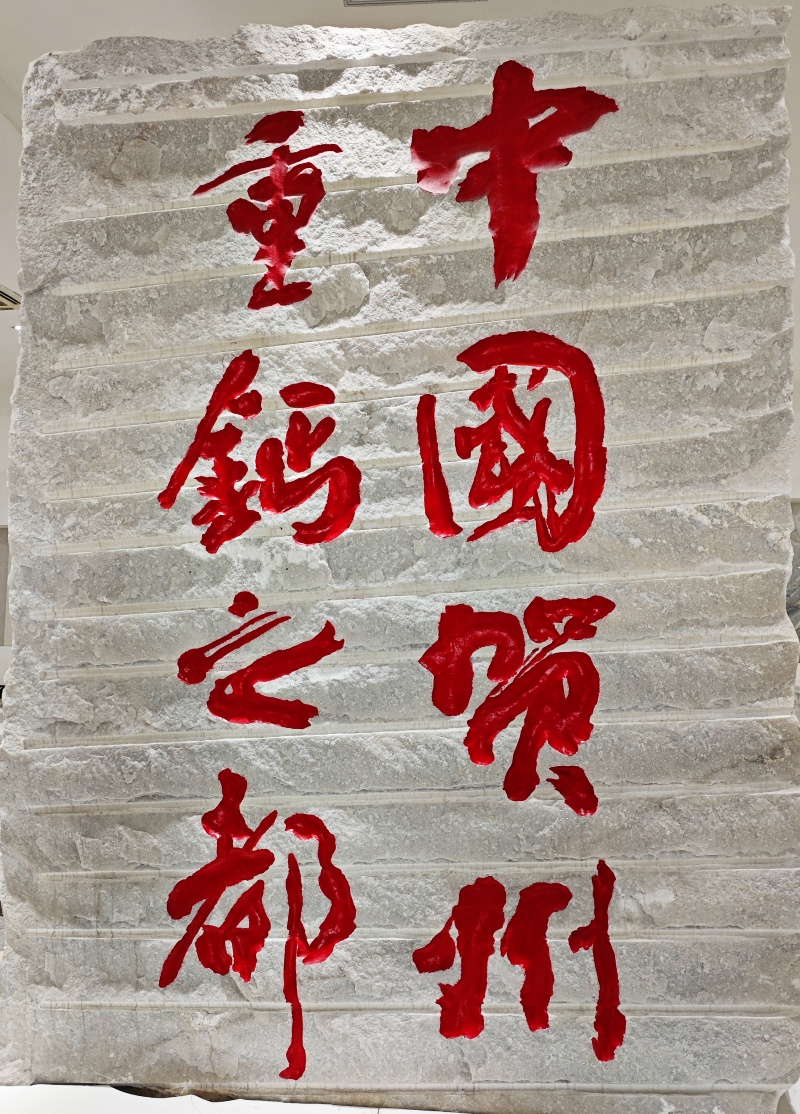 中國贺州
重鈣之都